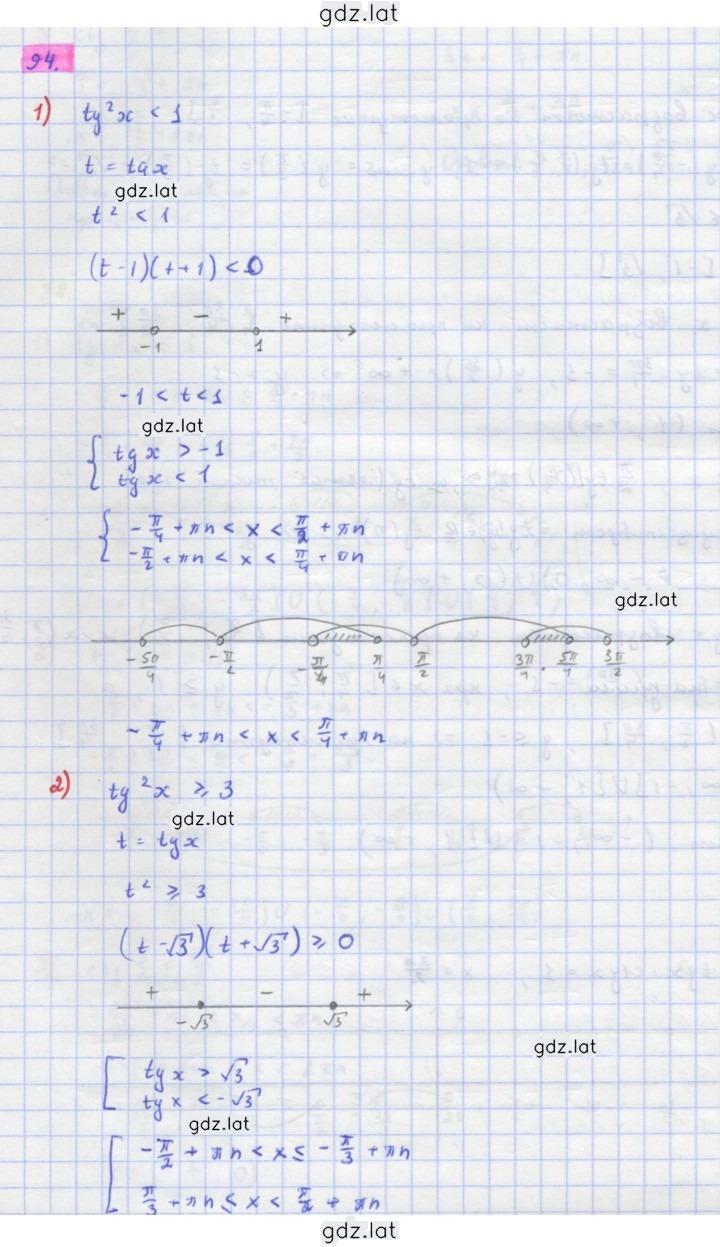 gdz.lat
94.
1) tg²x < 1
t = tgx
gdz.lat
t² < 1
(t-1)(t+1) < 0
+ - +
-1 1
-1 < t < 1
gdz.lat
{ tgx > -1
tgx < 1
{ -π/4 + πn < x < π/2 + πn
-π/2 + πn < x < π/4 + πn
gdz.lat
-5π/4 -π/2 -π/4 π/4 π/2 3π/4 5π/4 3π/2
-π/4 + πn < x < π/4 + πn
2) tg²x ⩾ 3
gdz.lat
t = tgx
t² ⩾ 3
(t-√3)(t+√3) ⩾ 0
+ - +
-√3 √3
gdz.lat
[ tgx > √3
tgx < -√3
gdz.lat
[ -π/2 + πn < x ≤ -π/3 + πn
π/3 + πn ≤ x < π/2 + πn
gdz.lat